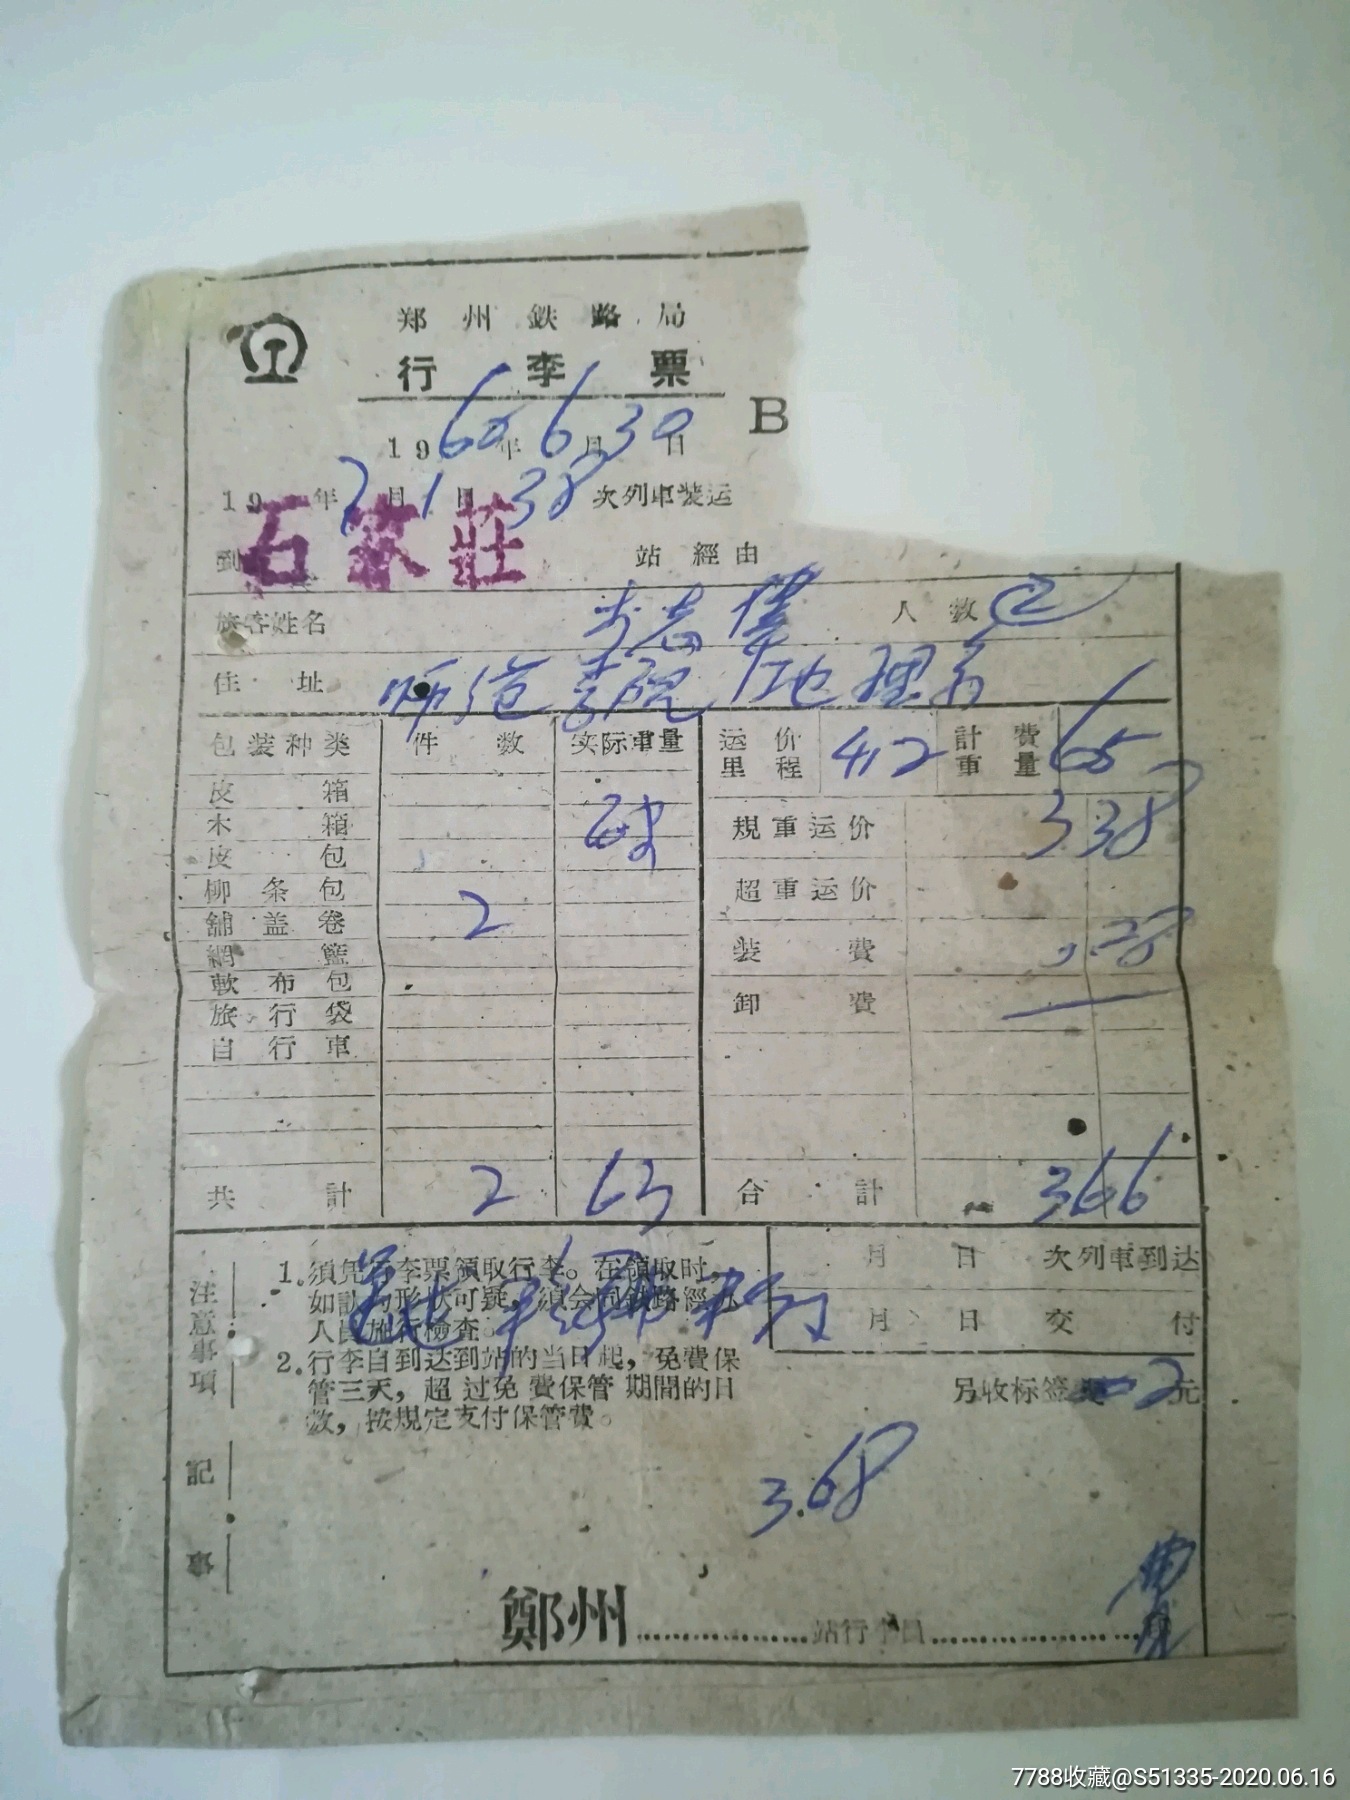 郑州鉄路局
行李票
B
1960年6月30日
19 年7月1日38次列車装运
到石家莊 站經由
旅客姓名 李志 人数②
住址 师范学院地理系
包装种类 件数 实际重量 运价里程 412 計費重量 65
皮箱
木箱
皮包
柳条包
舖盖卷 2
網籃
軟布包
旅行袋
自行車
共計 2 63
規重运价 3 38
超重运价
装費 0.28
卸費
合計 3 66
注意事項
1.須凭行李票領取行李。在領取时,
如認为形状可疑,須会同鉄路經办
人員施行檢查。
2.行李自到达到站的当日起,免費保
管三天,超过免費保管期間的日
数,按規定支付保管費。
月 日 次列車到达
月 日 交付
另收标签費 2元
記事
3.68
鄭州……站行李口……
7788收藏@S51335-2020.06.16